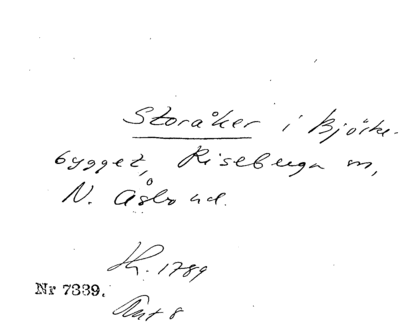 Storåker i Björke-
bygget, Riseberga sn,
N. Åsbo hd.
Sk. 1789
Nr 7339.
Akt 8